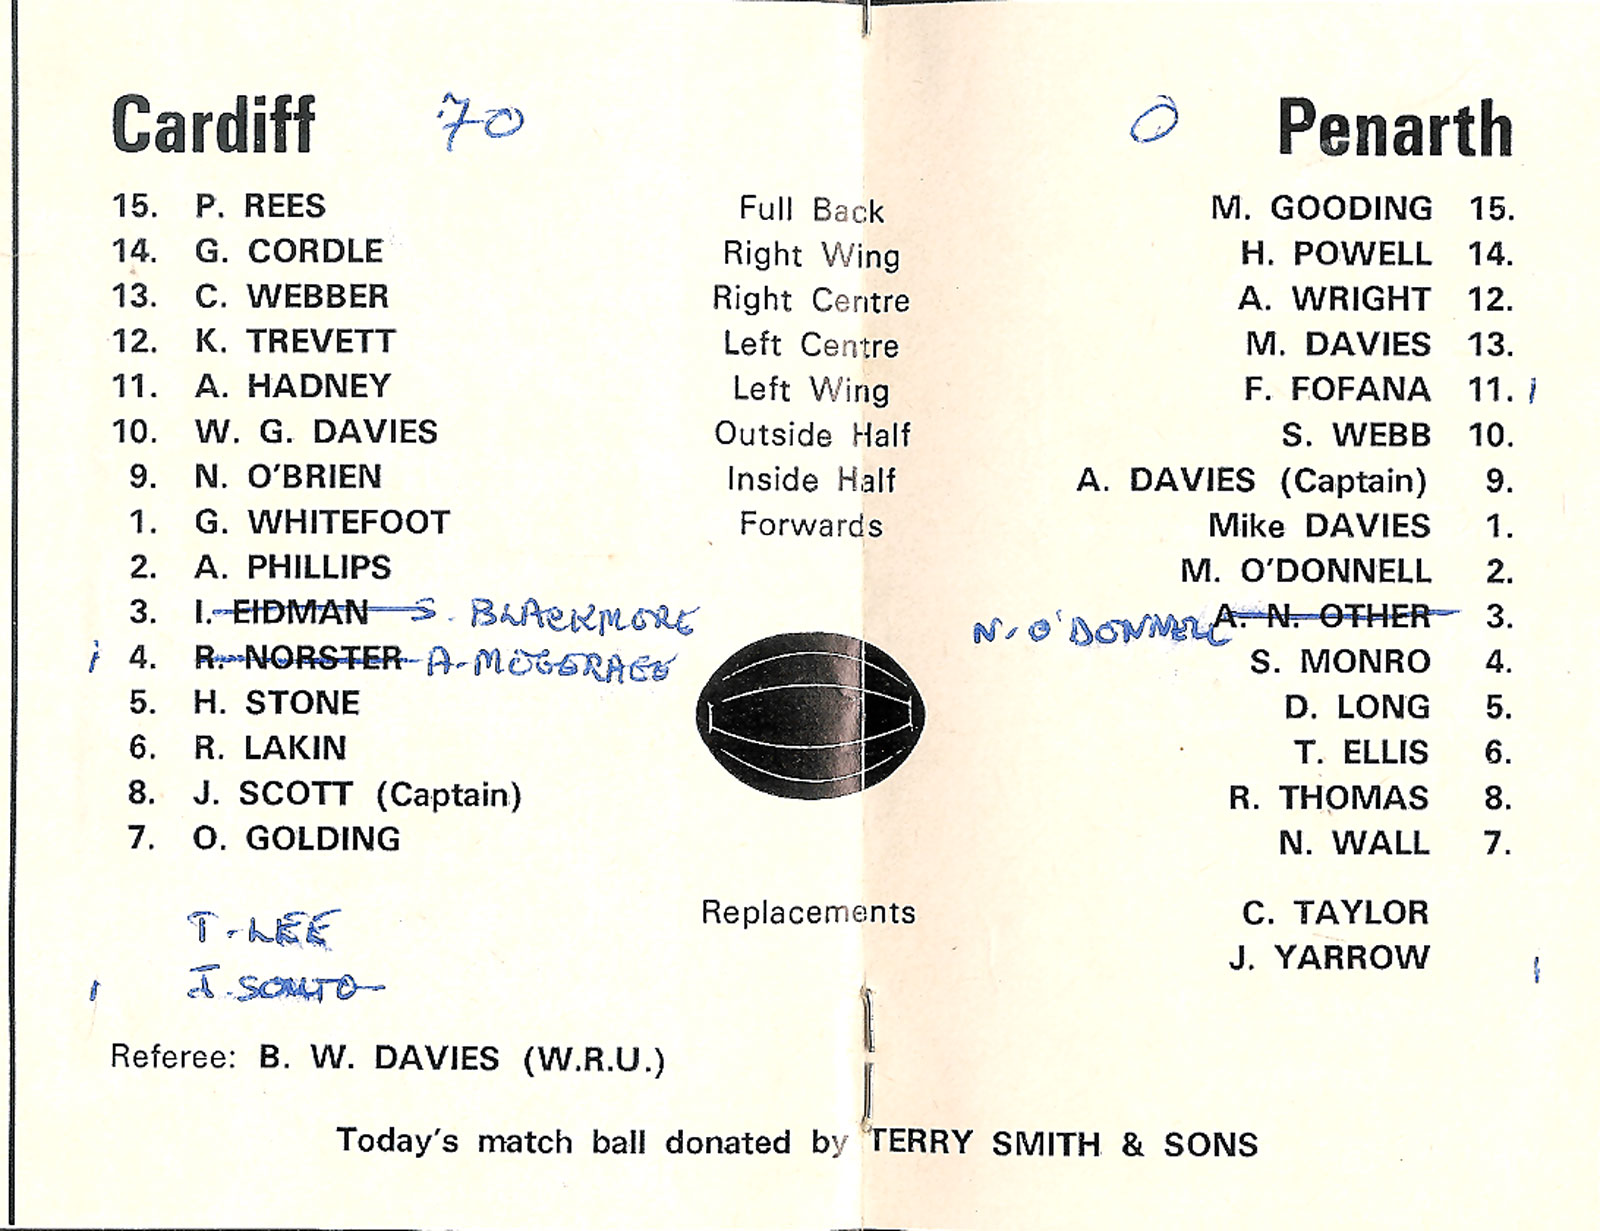 Cardiff 70 0 Penarth
15. P. REES Full Back M. GOODING 15.
14. G. CORDLE Right Wing H. POWELL 14.
13. C. WEBBER Right Centre A. WRIGHT 12.
12. K. TREVETT Left Centre M. DAVIES 13.
11. A. HADNEY Left Wing F. FOFANA 11. 1
10. W. G. DAVIES Outside Half S. WEBB 10.
9. N. O'BRIEN Inside Half A. DAVIES (Captain) 9.
1. G. WHITEFOOT Forwards Mike DAVIES 1.
2. A. PHILLIPS M. O'DONNELL 2.
3. I. EIDMAN S. BLACKMORE N. O'DONNELL A. N. OTHER 3.
4. R. NORSTER A. S. MONRO 4.
5. H. STONE D. LONG 5.
6. R. LAKIN T. ELLIS 6.
8. J. SCOTT (Captain) R. THOMAS 8.
7. O. GOLDING N. WALL 7.
T. LEE Replacements C. TAYLOR
J. YARROW
I. SOUTO
Referee: B. W. DAVIES (W.R.U.)
Today's match ball donated by TERRY SMITH & SONS